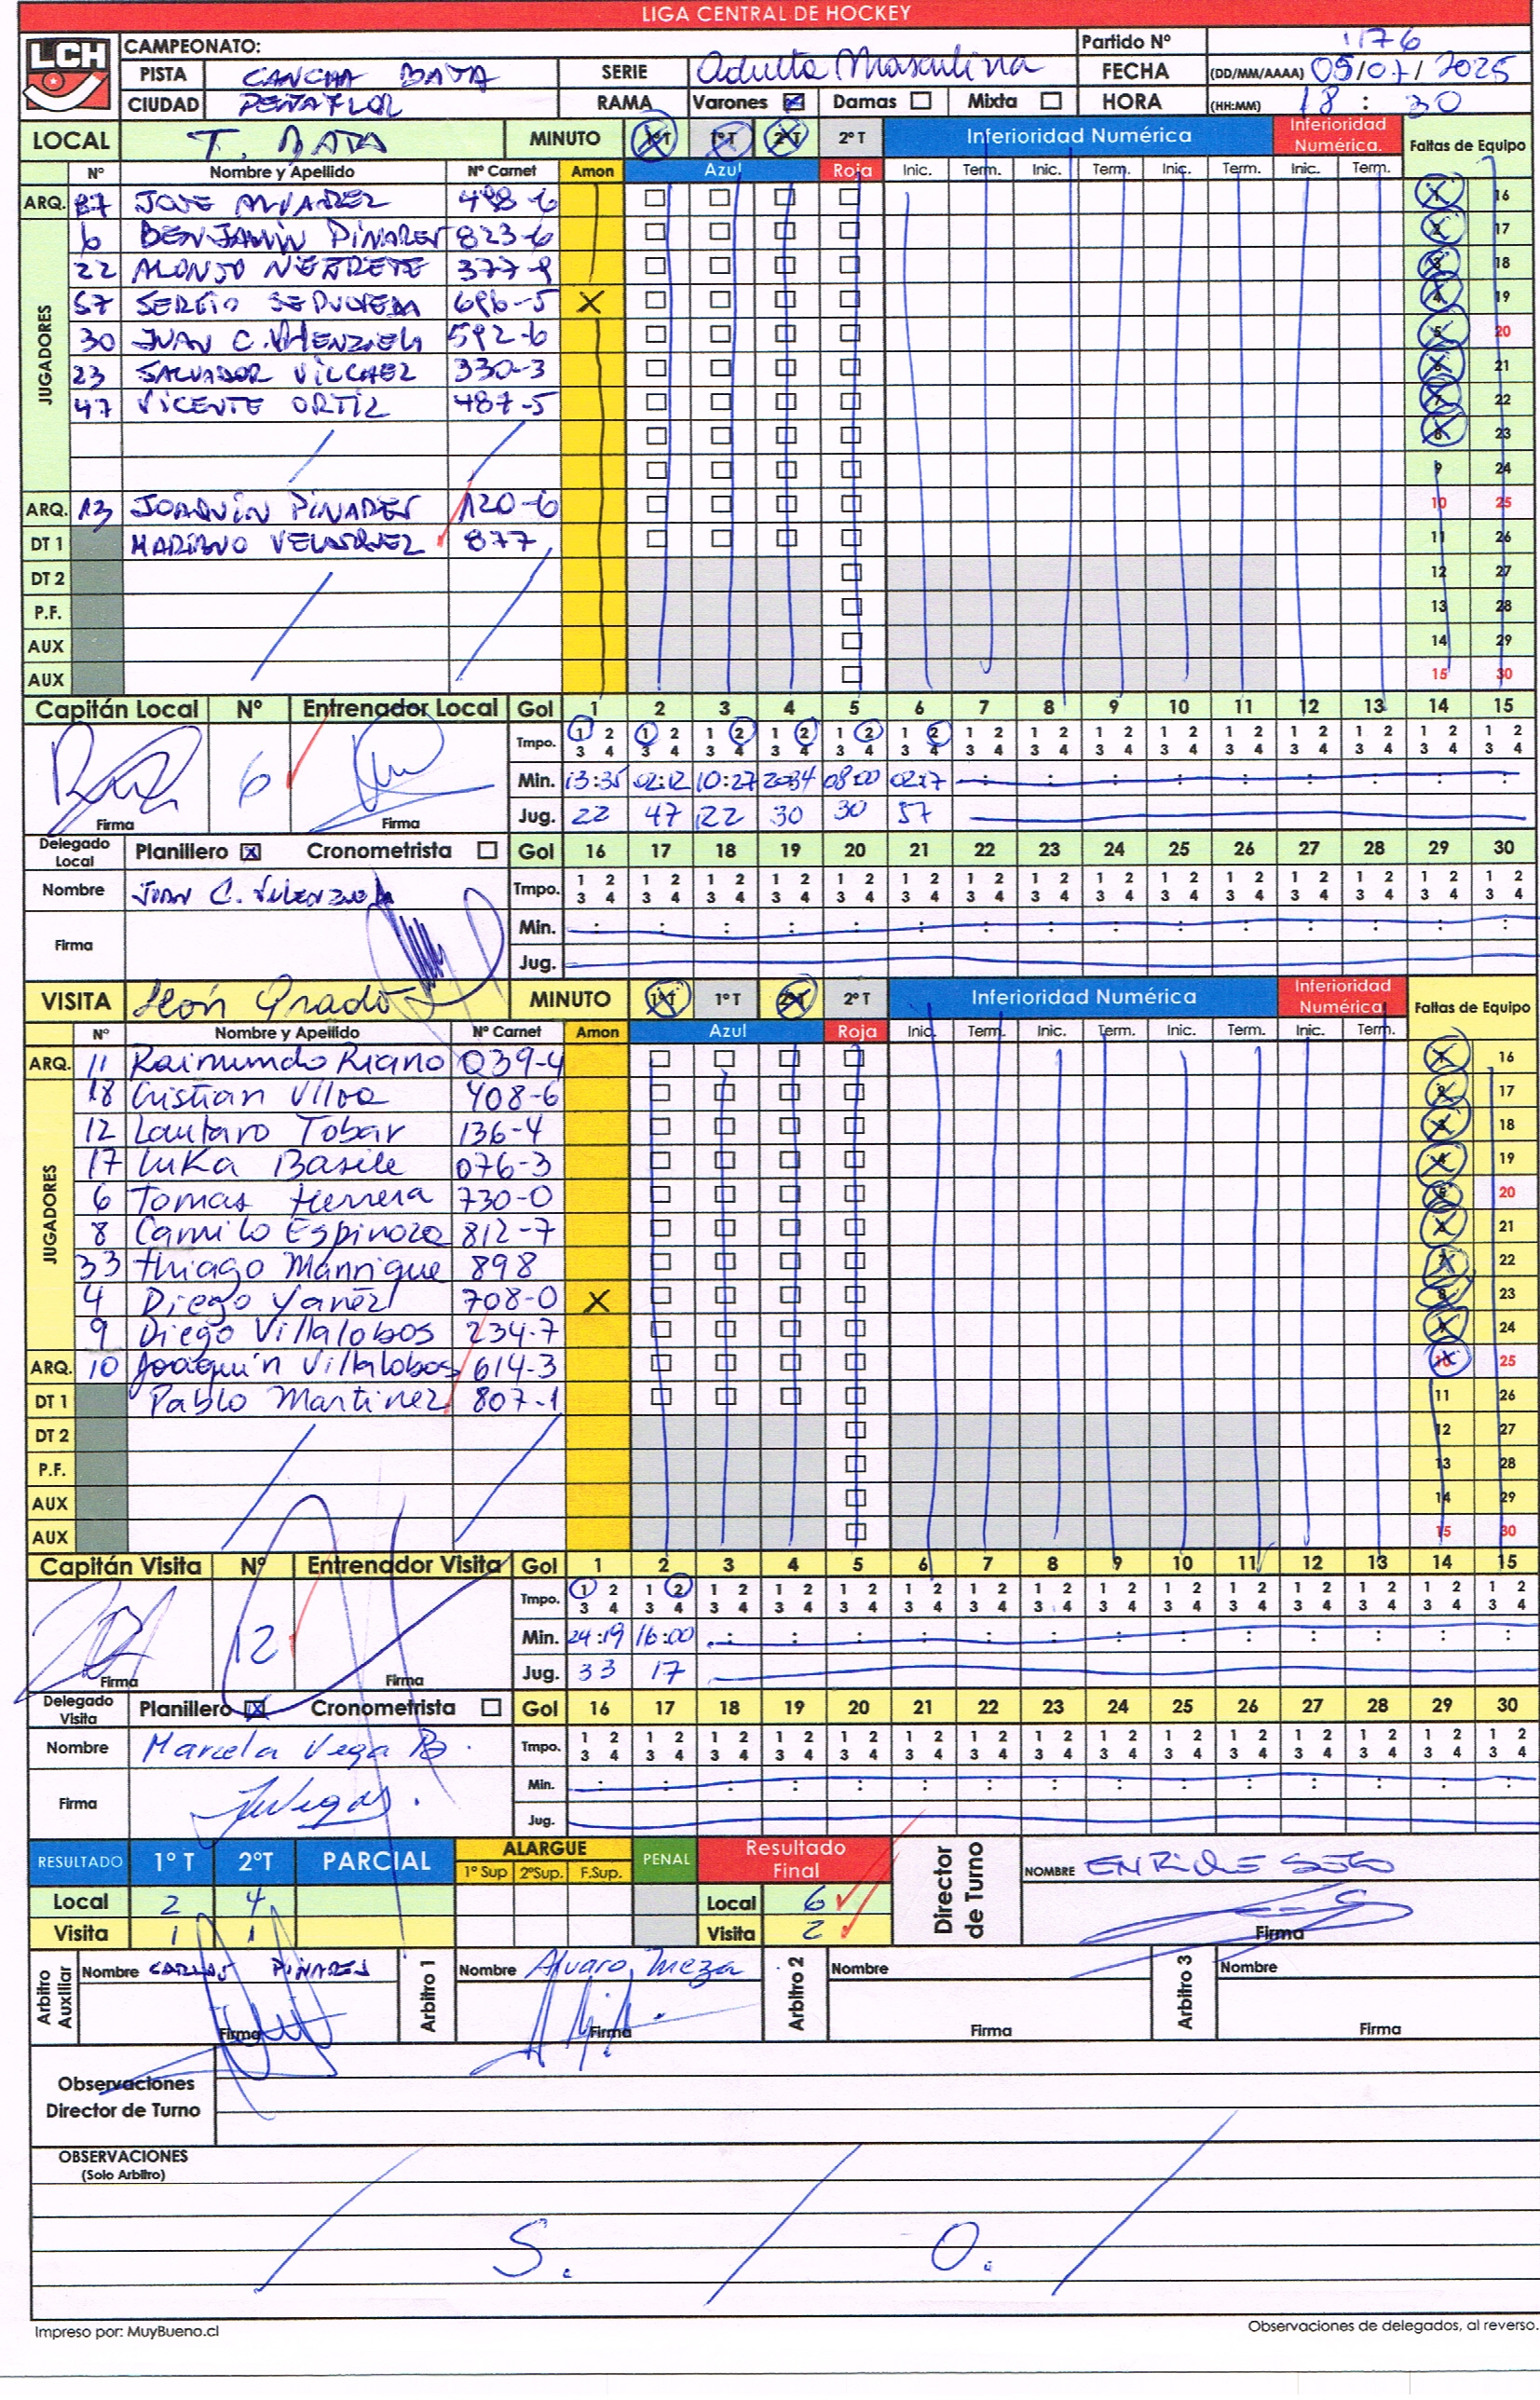 LIGA CENTRAL DE HOCKEY
LCH
CAMPEONATO: Partido Nº 1176
PISTA CANCHA BATA SERIE Adulta Masculina FECHA (DD/MM/AAAA) 05/07/2025
CIUDAD PEÑAFLOR RAMA Varones Damas Mixta HORA (HH:MM) 18 : 30
LOCAL T. BATA MINUTO 1ºT 1ºT 2ºT 2ºT Inferioridad Numérica Inferioridad Numérica. Faltas de Equipo
Nº Nombre y Apellido Nº Carnet Amon Azul Roja Inic. Term. Inic. Term. Inic. Term. Inic. Term.
ARQ. 87 JOSE ALVAREZ 498-6 1 16
JUGADORES
6 BENJAMIN PINARES 823-6 2 17
22 ALONSO NEGRETE 377-9 3 18
57 SERGIO SEPULVEDA 696-5 X 4 19
30 JUAN C. VALENZUELA 592-6 5 20
23 SALVADOR VILCHEZ 330-3 6 21
47 VICENTE ORTIZ 487-5 7 22
8 23
9 24
ARQ. 13 JOAQUIN PINARES 120-6 10 25
DT 1 MARIANO VELASQUEZ 877 11 26
DT 2 12 27
P.F. 13 28
AUX 14 29
AUX 15 30
Capitán Local Nº Entrenador Local Gol 1 2 3 4 5 6 7 8 9 10 11 12 13 14 15
Tmpo. 1 2 3 4 1 2 3 4 1 2 3 4 1 2 3 4 1 2 3 4 1 2 3 4 1 2 3 4 1 2 3 4 1 2 3 4 1 2 3 4 1 2 3 4 1 2 3 4 1 2 3 4 1 2 3 4 1 2 3 4
6 Min. 13:35 02:12 10:27 08:00 02:17
Firma Firma Jug. 22 47 22 30 30 57
Delegado Local Planillero Cronometrista Gol 16 17 18 19 20 21 22 23 24 25 26 27 28 29 30
Nombre JUAN C. VALENZUELA Tmpo. 1 2 3 4 1 2 3 4 1 2 3 4 1 2 3 4 1 2 3 4 1 2 3 4 1 2 3 4 1 2 3 4 1 2 3 4 1 2 3 4 1 2 3 4 1 2 3 4 1 2 3 4 1 2 3 4 1 2 3 4
Firma Min.
Jug.
VISITA León Prado MINUTO 1ºT 1ºT 2ºT 2ºT Inferioridad Numérica Inferioridad Numérica Faltas de Equipo
Nº Nombre y Apellido Nº Carnet Amon Azul Roja Inic. Term. Inic. Term. Inic. Term. Inic. Term.
ARQ. 11 Raimundo Riano 039-4 1 16
JUGADORES
18 Cristian Ulloa 408-6 2 17
12 Lautaro Tobar 136-4 3 18
17 Luka Basile 076-3 4 19
6 Tomas Herrera 730-0 5 20
8 Camilo Espinoza 812-7 6 21
33 Thiago Manrique 898 7 22
4 Diego Yañez 708-0 X 8 23
9 Diego Villalobos 234-7 9 24
ARQ. 10 Joaquin Villalobos 614-3 10 25
DT 1 Pablo Martinez 807-1 11 26
DT 2 12 27
P.F. 13 28
AUX 14 29
AUX 15 30
Capitán Visita Nº Entrenador Visita Gol 1 2 3 4 5 6 7 8 9 10 11 12 13 14 15
Tmpo. 1 2 3 4 1 2 3 4 1 2 3 4 1 2 3 4 1 2 3 4 1 2 3 4 1 2 3 4 1 2 3 4 1 2 3 4 1 2 3 4 1 2 3 4 1 2 3 4 1 2 3 4 1 2 3 4 1 2 3 4
12 Min. 24:19 16:00
Firma Firma Jug. 33 17
Delegado Visita Planillero Cronometrista Gol 16 17 18 19 20 21 22 23 24 25 26 27 28 29 30
Nombre Marcela Vega B. Tmpo. 1 2 3 4 1 2 3 4 1 2 3 4 1 2 3 4 1 2 3 4 1 2 3 4 1 2 3 4 1 2 3 4 1 2 3 4 1 2 3 4 1 2 3 4 1 2 3 4 1 2 3 4 1 2 3 4 1 2 3 4
Firma Min.
Jug.
RESULTADO 1º T 2ºT PARCIAL ALARGUE 1º Sup 2ºSup. F.Sup. PENAL Resultado Final Director de Turno NOMBRE ENRIQUE SOTO
Local 2 4 Local 6
Visita 1 1 Visita 2 Firma
Arbitro Auxiliar Nombre CARLOS PINARES Arbitro 1 Nombre Alvaro Meza Arbitro 2 Nombre Arbitro 3 Nombre
Firma Firma Firma Firma
Observaciones
Director de Turno
OBSERVACIONES
(Solo Arbitro)
S. O.
Impreso por: MuyBueno.cl Observaciones de delegados, al reverso.